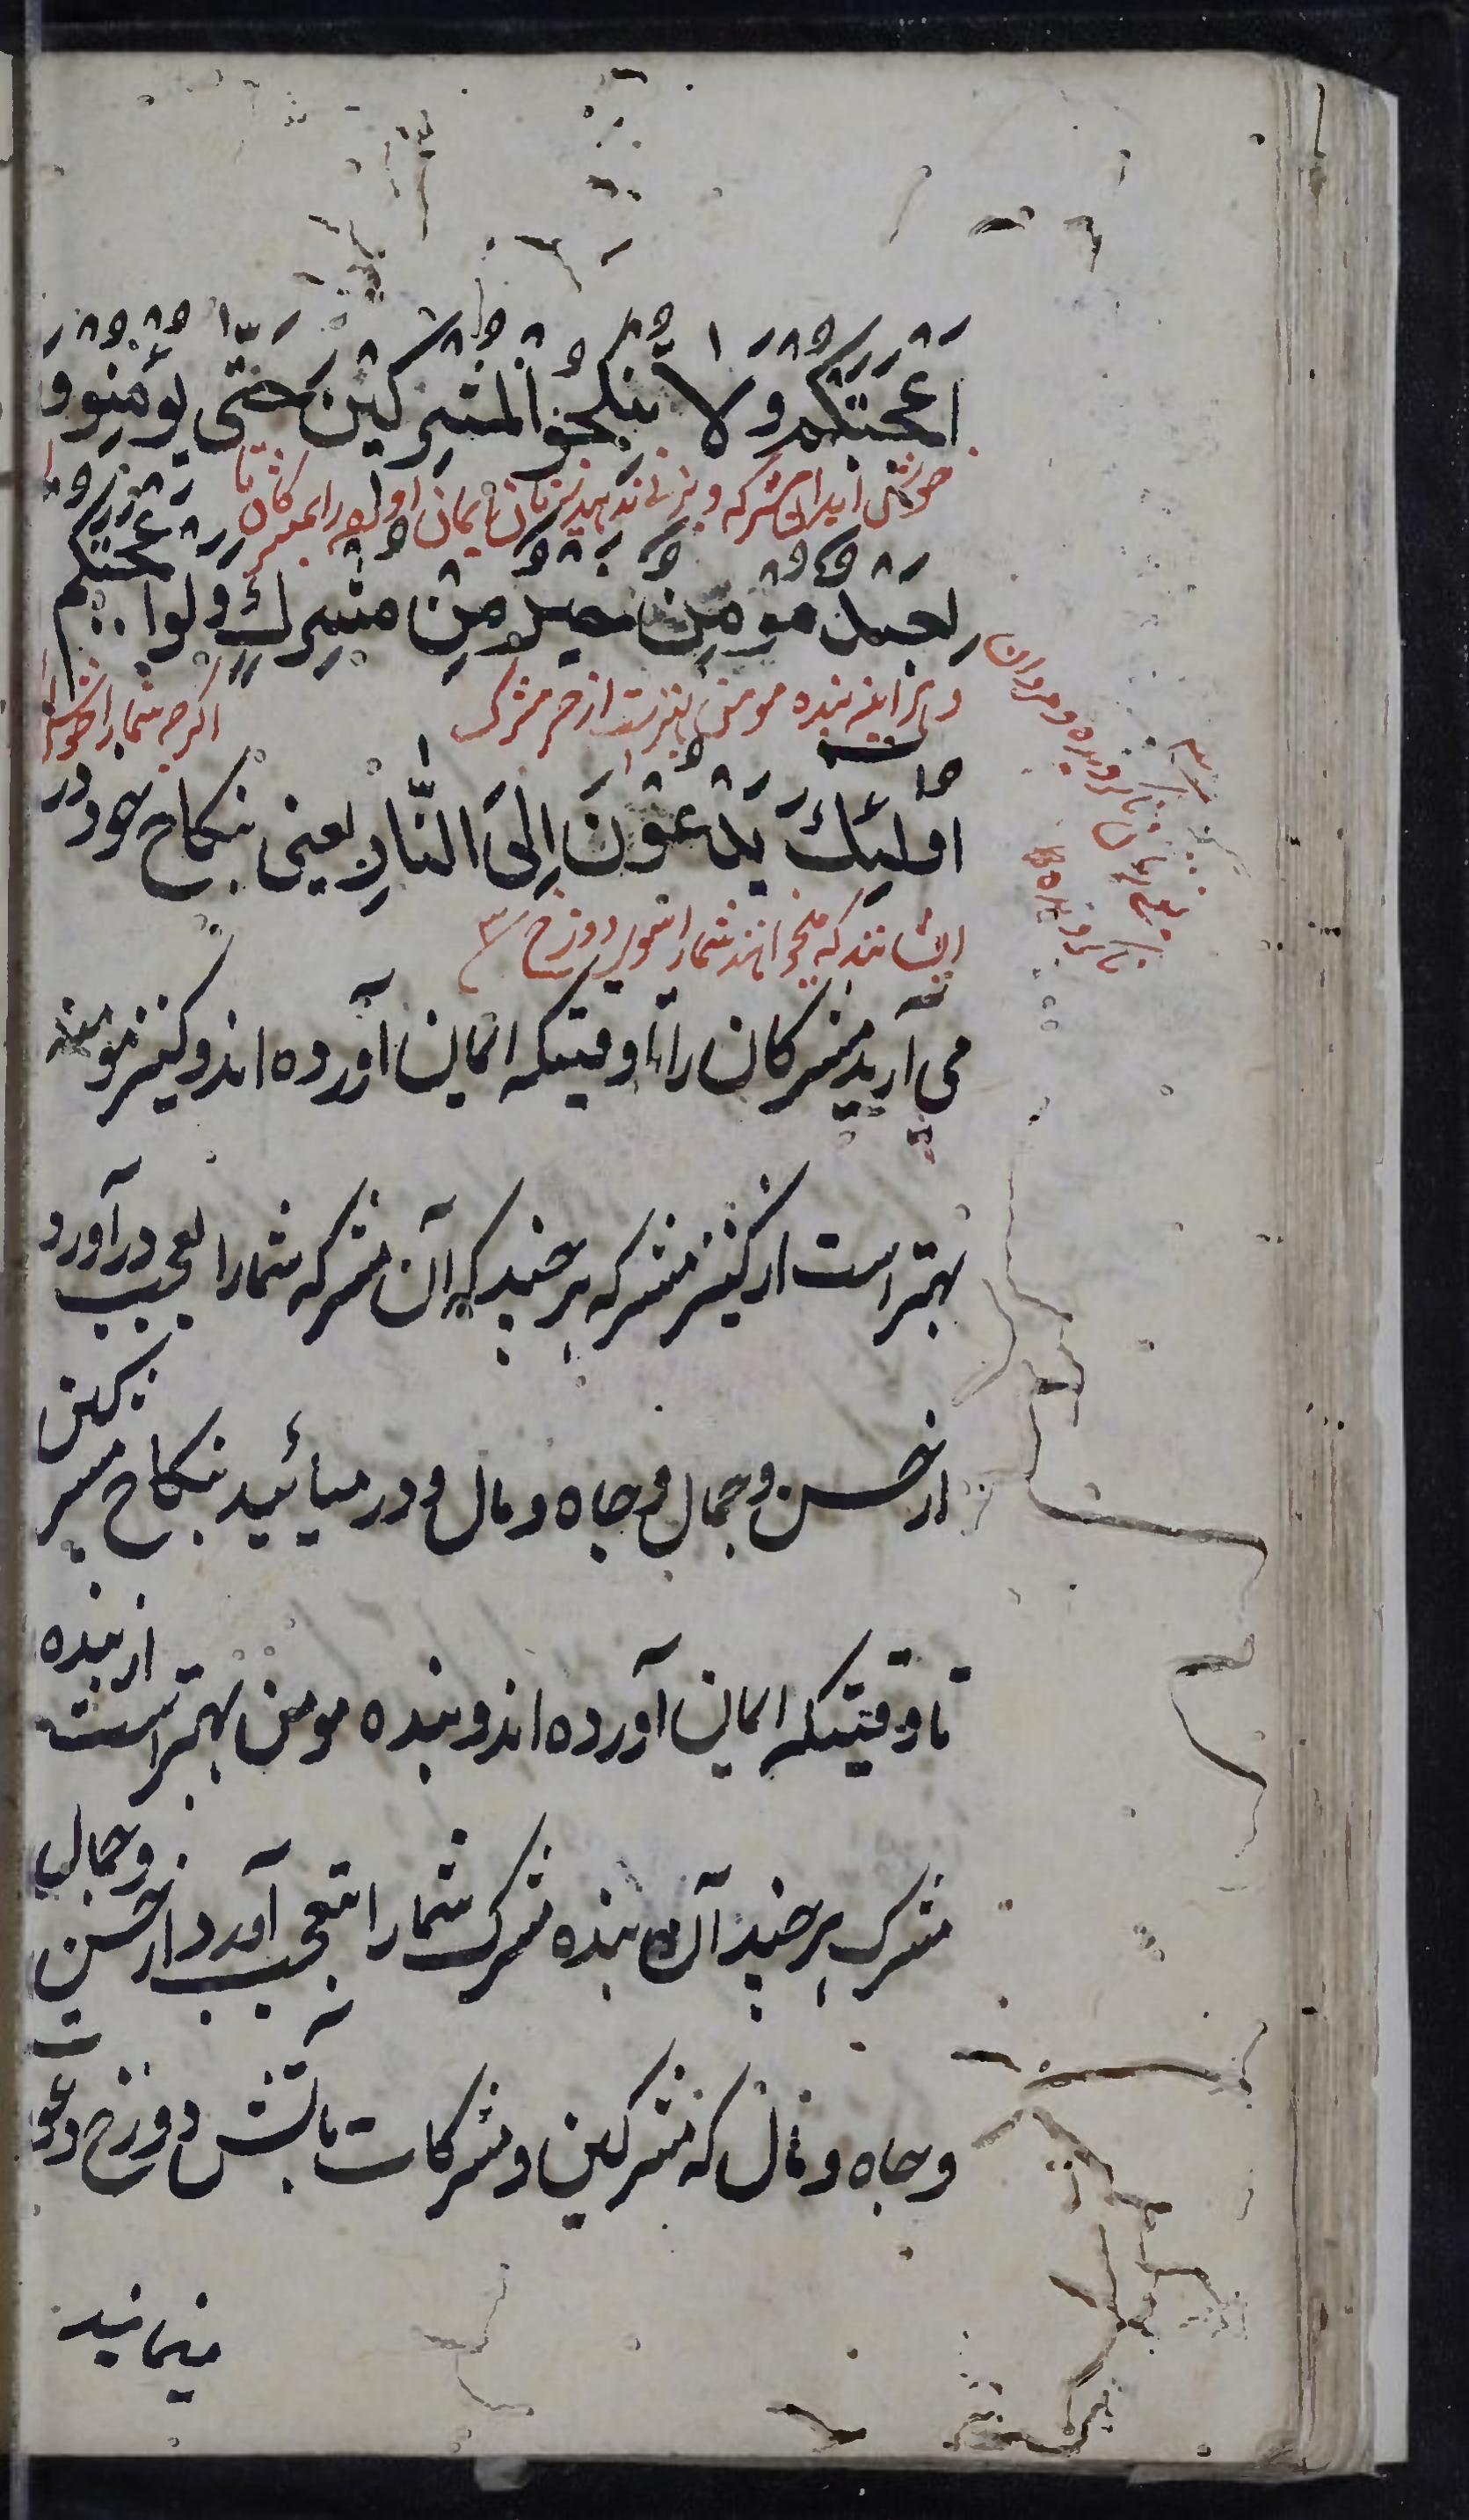 اَعْجَبَتْكُمْ وَلَا تُنْكِحُوا الْمُشْرِكِيْنَ حَتّٰى يُؤْمِنُوْ وَ
خوش آید آن مشرکه و بزنی ندهید زنان با ایمان را مشرکان تا
لَعَبْدٌ مُؤْمِنٌ خَيْرٌ مِنْ مُشْرِكٍ وَلَوْ اَعْجَبَكُمْ
و هرآینه بنده مومن بهتر است از حر مشرک اگرچه شما را خوش
اُولٰئِكَ يَدْعُوْنَ اِلَى النَّارِ یعنی بنکاح خود در
ایشانند که میخوانند شما را بسوی دوزخ ۳
می آرید مشرکان را تا وقتیکه ایمان آورده اند و کنیز مومنه
بهتر است از کنیز مشرکه هر چند که آن مشرکه شمارا بعجب در آورد
از حسن و جمال و جاه و مال و در میائید بنکاح مشرکین
تا وقتیکه ایمان آورده اند و بنده مومن بهتر است از بنده
مشرک هر چند آن بنده مشرک شمارا بتعجب آورد از حسن و جمال
و جاه و مال که مشرکین و مشرکات بآتش دوزخ دعوت
مینمایند